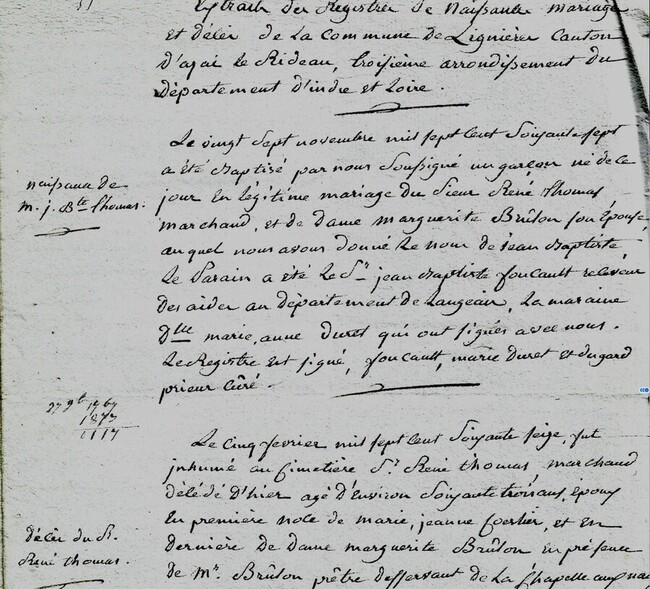 Extrait des Registres de Naissance mariage
et décès de la Commune de Lignière Canton
D'azai le Rideau, troisième arrondissement du
Département d'indre et Loire.
naissance de
m. j. Bte thomas.
Le vingt Sept novembre mil sept Cent Soixante sept
a été Baptisé par nous Soussigné un garçon né de ce
jour en légitime mariage du Sieur René thomas
marchand, et de Dame marguerite Brûlon son épouse,
auquel nous avons donné le nom de jean Baptiste
Le Parain a été le Sr jean Baptiste foucault receveur
Des aides au département de Langeais, La maraine
Dlle marie, anne Duret qui ont signés avec nous.
Le Registre est signé, foucault, marie Duret et dugard
prieur Curé.
27 9b 1767
1117
Le Cinq fevrier mil sept Cent Soixante Seize, fut
inhumé au Cimetière Sr René thomas marchand
décédé D'hier agé D'Environ Soixante trois ans, époux
En première noce de marie, jeanne
et En
décès du Sr
René thomas.
dernière de Dame marguerite Brûlon En présence
de Mr Brûlon prêtre desservant de La Chapelle aux